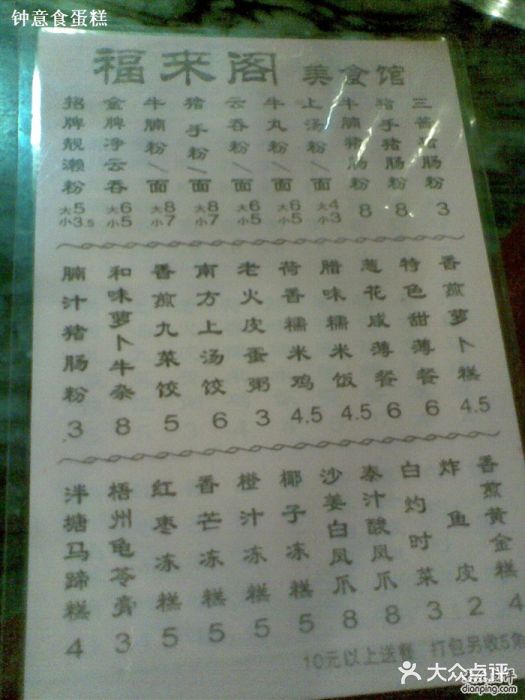 钟意食蛋糕
福来阁 美食馆
招牌靓濑粉 大5 小3.5
金牌净云吞 大6 小5
牛腩粉/面 大8 小7
猪手粉/面 大8 小7
云吞粉/面 大6 小5
牛丸粉/面 大6 小5
上汤粉/面 大4 小3
牛腩猪肠粉 8
猪手猪肠粉 8
三酱猪肠粉 3
腩汁猪肠粉 3
和味萝卜牛杂 8
香煎九菜饺 5
南方上汤饺 6
老火皮蛋粥 3
荷香糯米鸡 4.5
腊味糯米饭 4.5
葱花咸薄餐 6
特色甜薄餐 6
香煎萝卜糕 4.5
泮塘马蹄糕 4
梧州龟苓膏 3
红枣冻糕 5
香芒冻糕 5
橙汁冻糕 5
椰子冻糕 5
沙姜白凤爪 8
泰汁酸凤爪 8
白灼时菜 3
炸鱼皮 2
香煎黄金糕 4
10元以上送餐 打包另收5角
大众点评
dianping.com